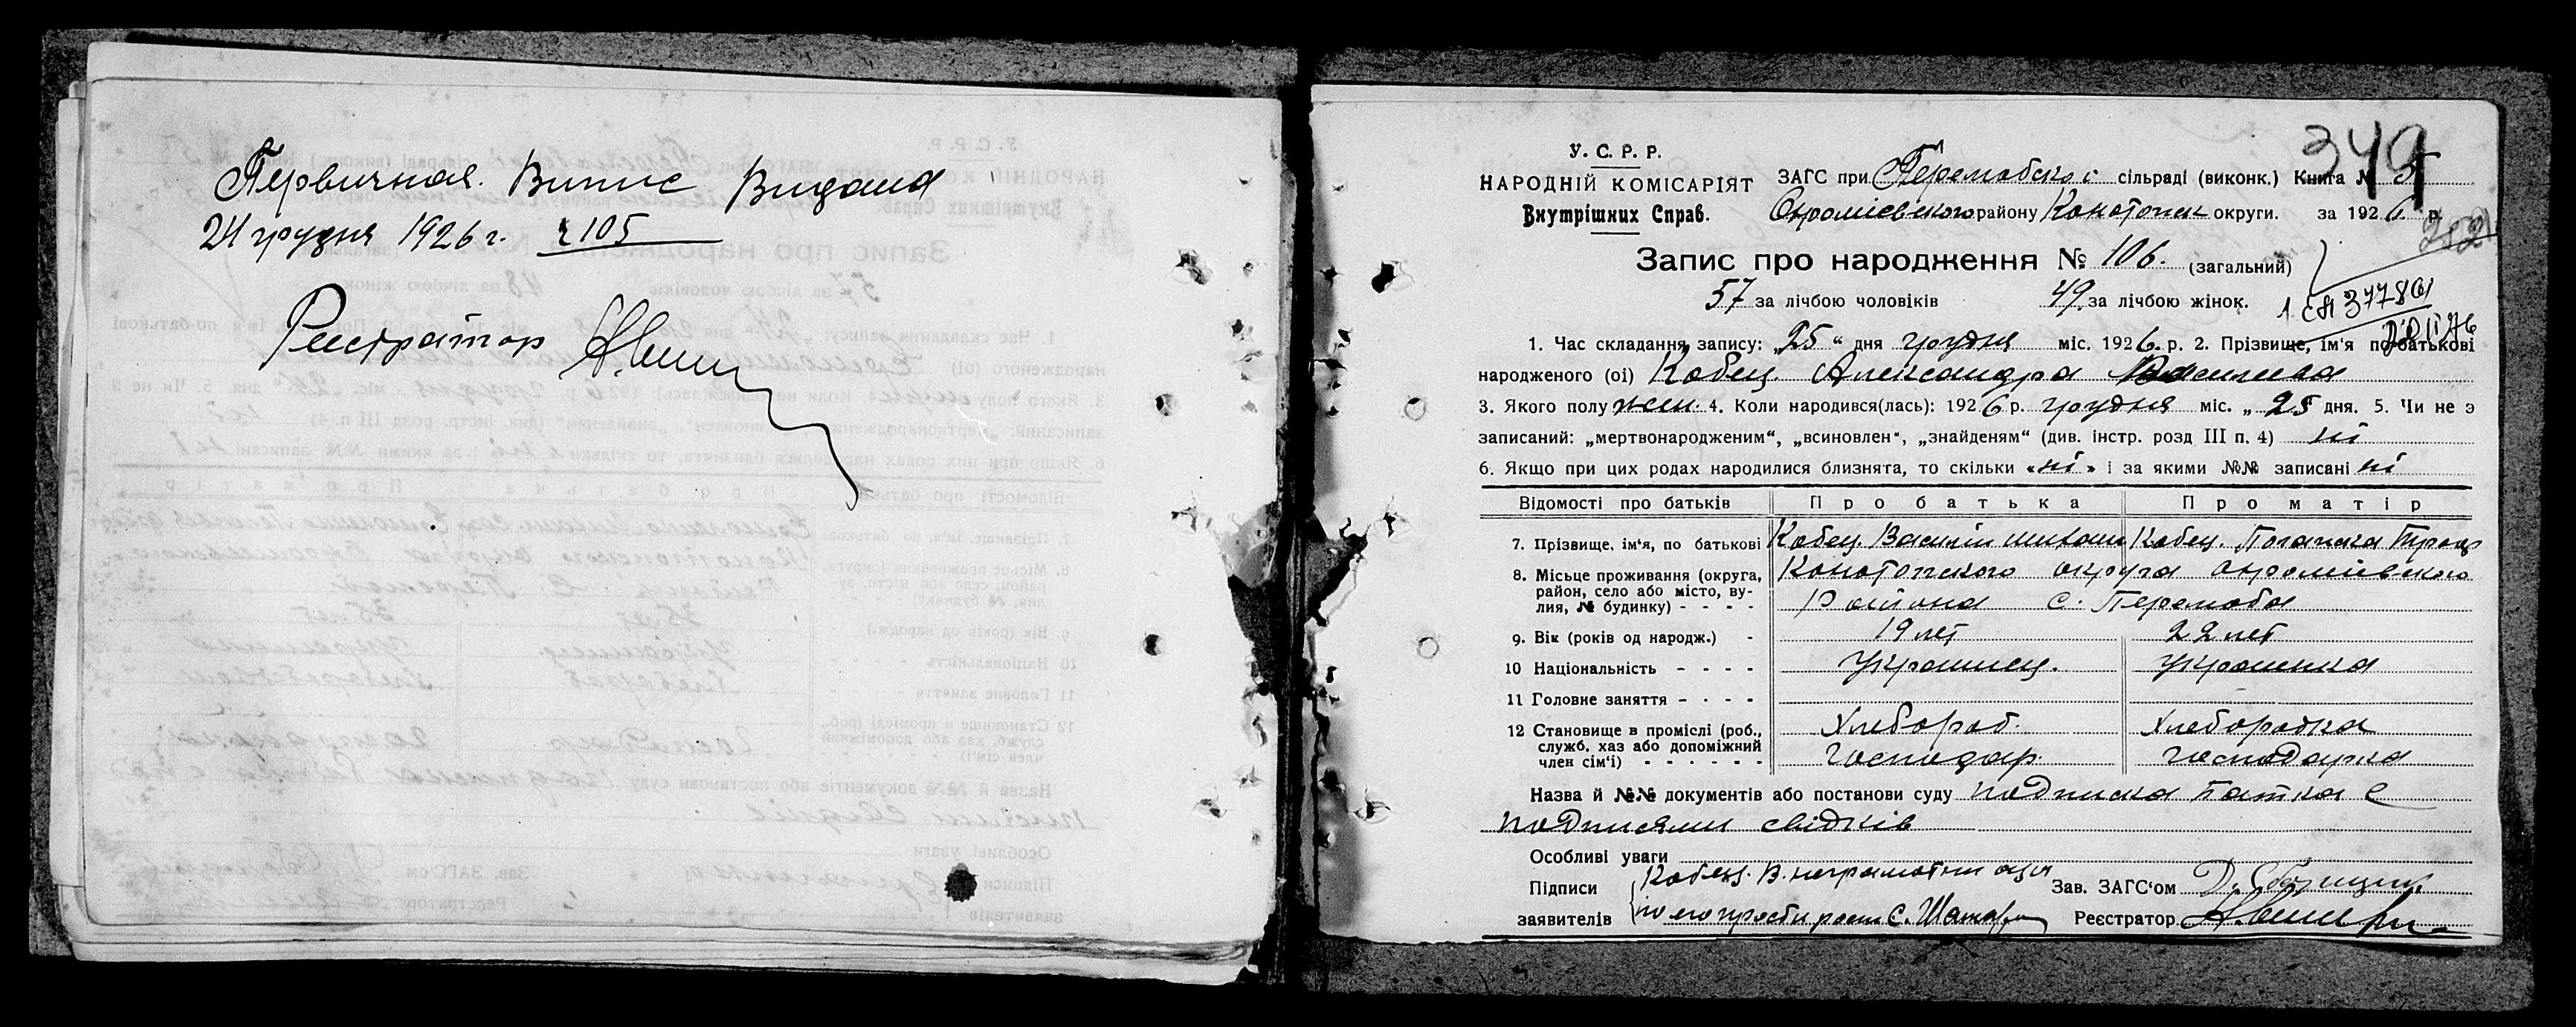 Первичная. Випис Видана
24 грудня 1926 г. 105
Реєстратор
349
У. С. Р. Р.
НАРОДНІЙ КОМІСАРІЯТ
Внутрішніх Справ.
ЗАГС при сільраді (виконк.) Книга № 5
району Конотопск округи. за 1926 р.
Запис про народження № 106. (загальний)
57 за лічбою чоловіків 49 за лічбою жінок.
1. Час складання запису: „25“ дня грудня міс. 1926 р. 2. Прізвище, ім'я по батькові
народженого (ої) Кобец. Александра
3. Якого полу жен. 4. Коли народився(лась): 1926 р. грудня міс. „25 дня. 5. Чи не э
записаний: „мертвонародженим“, „всиновлен“, „знайденям“ (див. інстр. розд III п. 4) ні
6. Якщо при цих родах народилися близнята, то скільки «ні» і за якими №№ записані ні
Відомості про батьків Про батька Про матір
7. Прізвище, ім'я, по батькові Кобец. Василій Кобец.
8. Місьце проживання (округа, Конотопского округа
район, село або місто, ву- района с.
лия, № будинку) - - - -
9. Вік (років од народж.) - 19 лет 22 лет
10 Національність - - - - Украинец. Украинка
11 Головне заняття - - - -
12 Становище в промислі (роб., Хлебороб. Хлеборобка
служб. хаз або допоміжний
член сім'ї) - - - - - - Господар. Господарка
Назва й №№ документів або постанови суду подписка батка с
подписями свідків
Особливі уваги
Підписи Кобец. В. неграмотни Зав. ЗАГС'ом
заявителів по его прозби росп С. Реєстратор